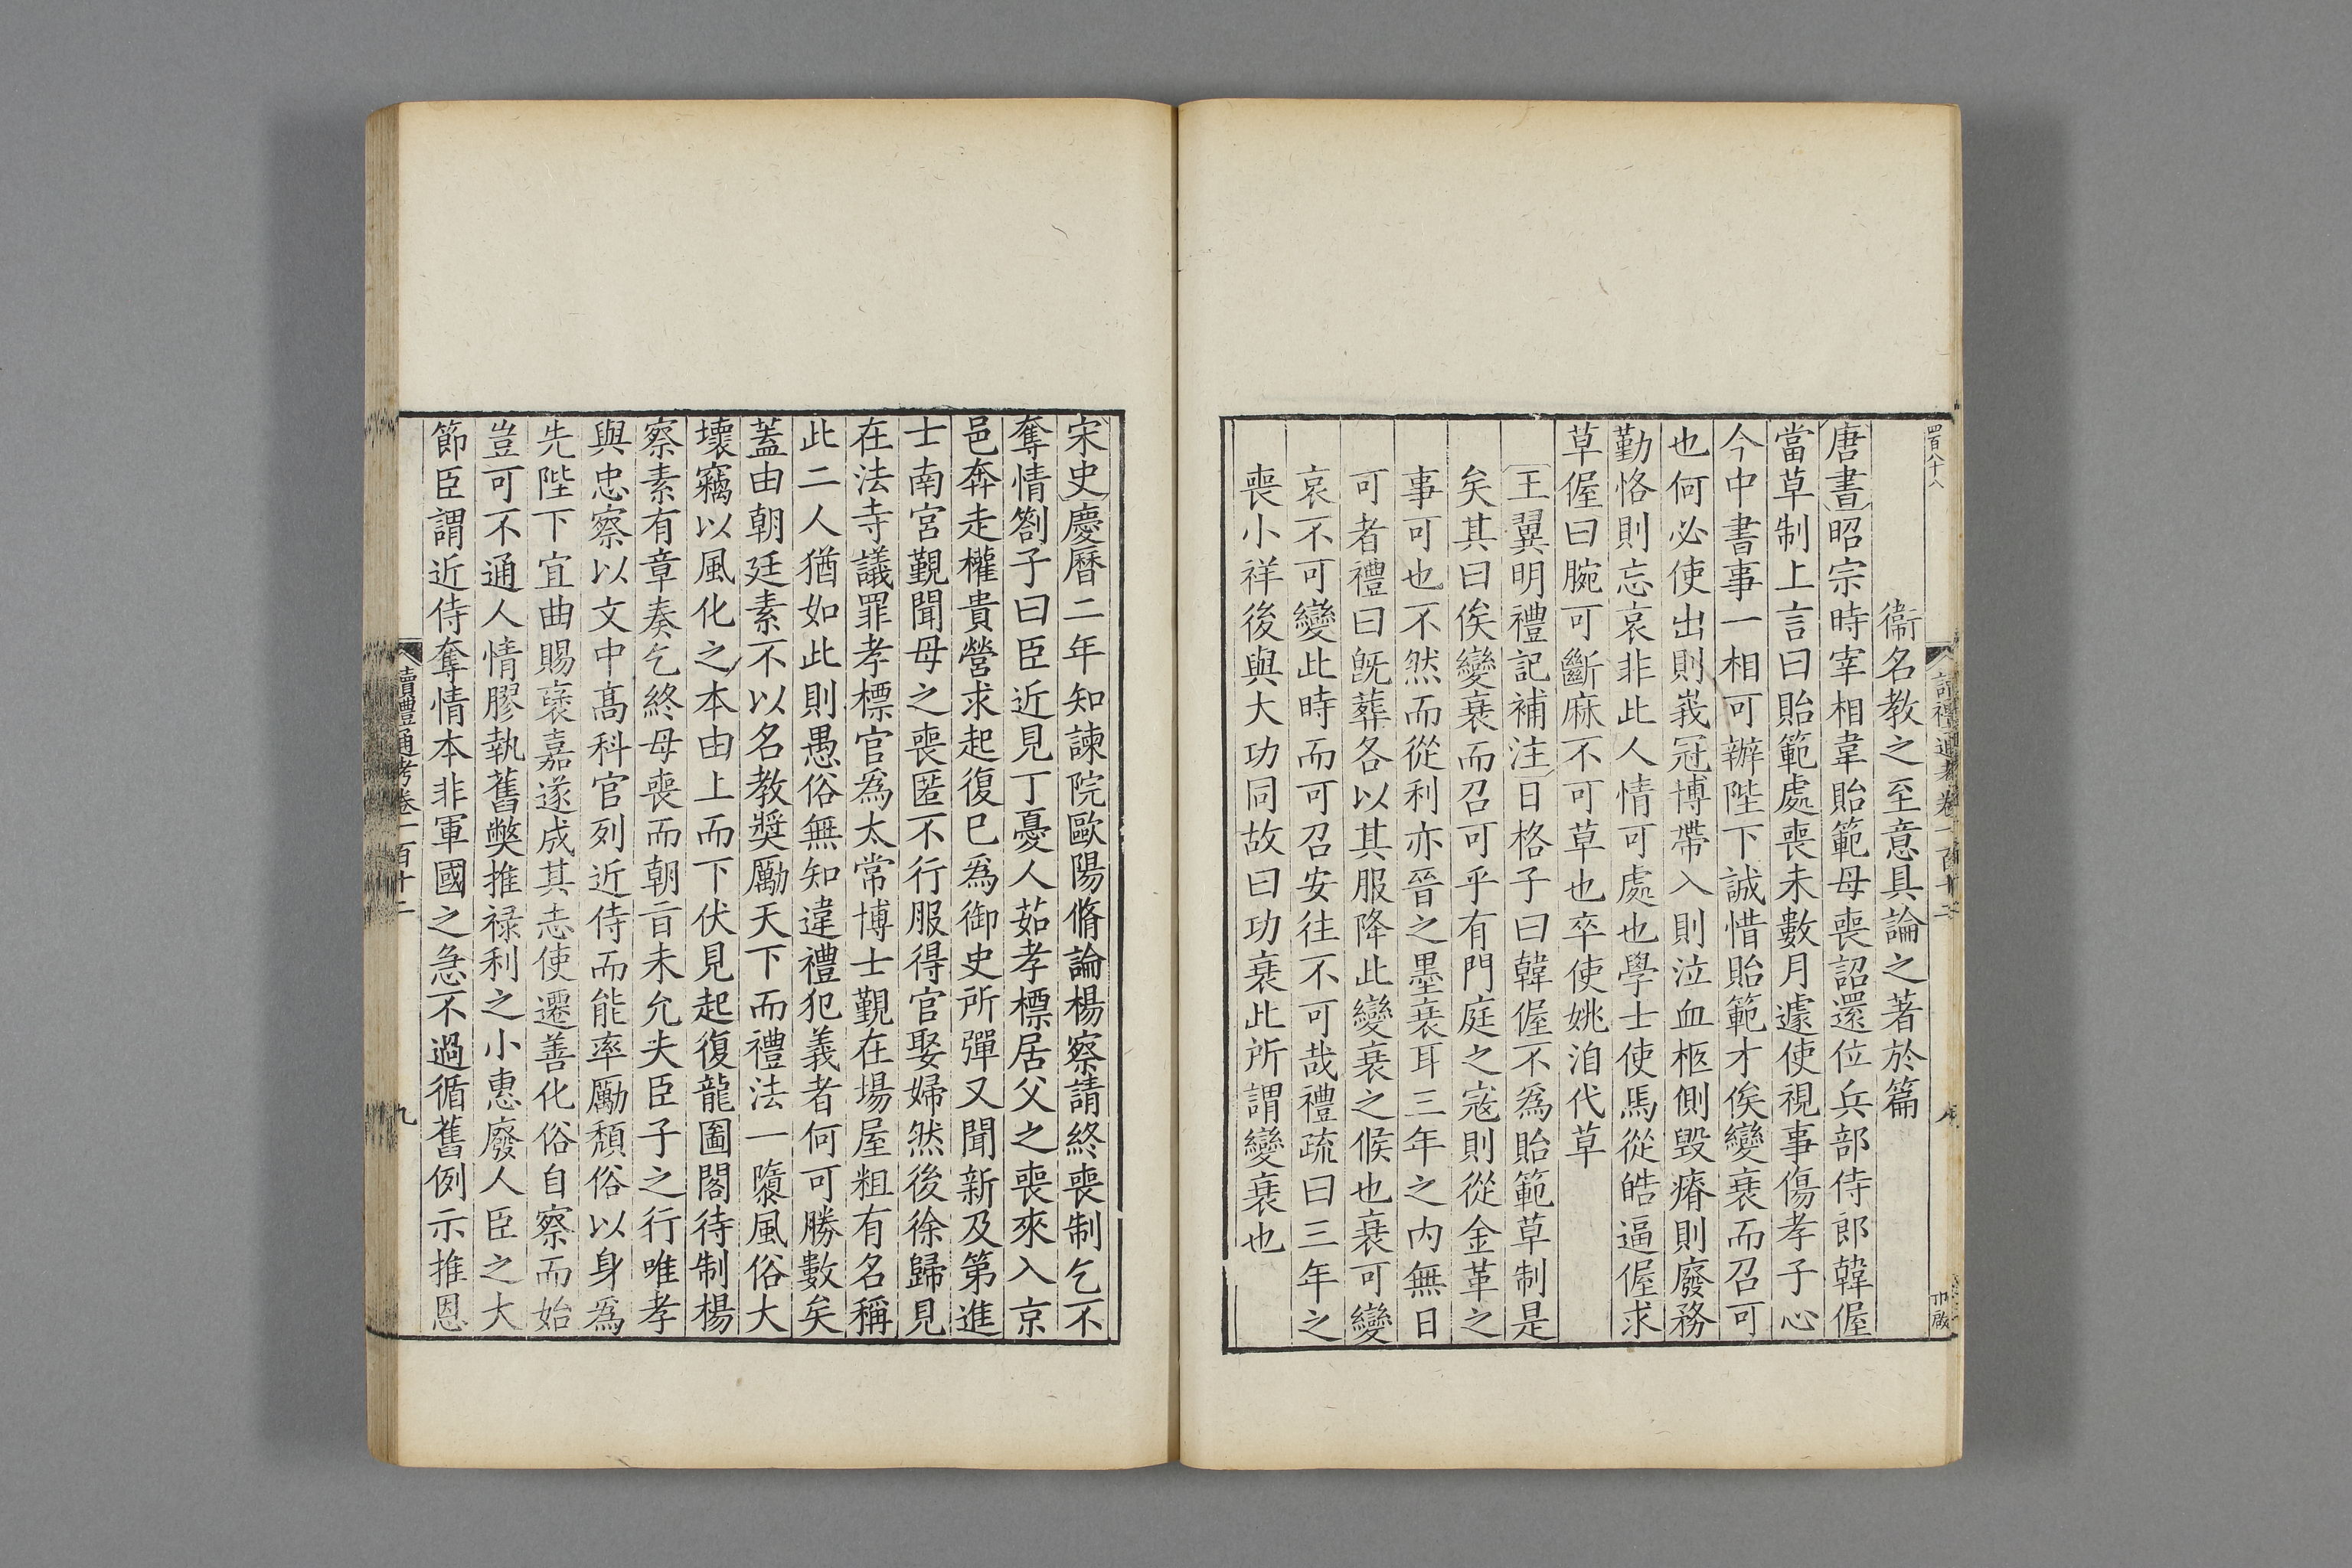 四百八十八
讀禮通考卷一百十二 八
衞名教之至意具論之著於篇
唐書昭宗時宰相韋貽範母喪詔還位兵部侍郎韓偓
當草制上言曰貽範處喪未數月遽使視事傷孝子心
今中書事一相可辦陛下誠惜貽範才俟變衰而召可
也何必使出則峩冠博帶入則泣血柩側毀瘠則廢務
勤恪則忘哀非此人情可處也學士使馬從皓逼偓求
草偓曰腕可斷麻不可草也卒使姚洎代草
王翼明禮記補注曰格子曰韓偓不爲貽範草制是
矣其曰俟變衰而召可乎有門庭之寇則從金革之
事可也不然而從利亦晉之墨衰耳三年之内無日
可者禮曰旣葬各以其服降此變衰之候也衰可變
哀不可變此時而可召安往不可哉禮疏曰三年之
喪小祥後與大功同故曰功衰此所謂變衰也
宋史慶曆二年知諫院歐陽脩論楊察請終喪制乞不
奪情劄子曰臣近見丁憂人茹孝標居父之喪來入京
邑奔走權貴營求起復巳爲御史所彈又聞新及第進
士南宮覲聞母之喪匿不行服得官娶婦然後徐歸見
在法寺議罪孝標官爲太常博士覲在場屋粗有名稱
此二人猶如此則愚俗無知違禮犯義者何可勝數矣
蓋由朝廷素不以名教獎勵天下而禮法一隳風俗大
壞竊以風化之本由上而下伏見起復龍圖閣待制楊
察素有章奏乞終母喪而朝旨未允夫臣子之行唯孝
與忠察以文中髙科官列近侍而能率勵頽俗以身爲
先陛下宜曲賜襃嘉遂成其志使遷善化俗自察而始
豈可不通人情膠執舊獘推祿利之小惠廢人臣之大
節臣謂近侍奪情本非軍國之急不過循舊例示推恩
讀禮通考卷一百十二 九